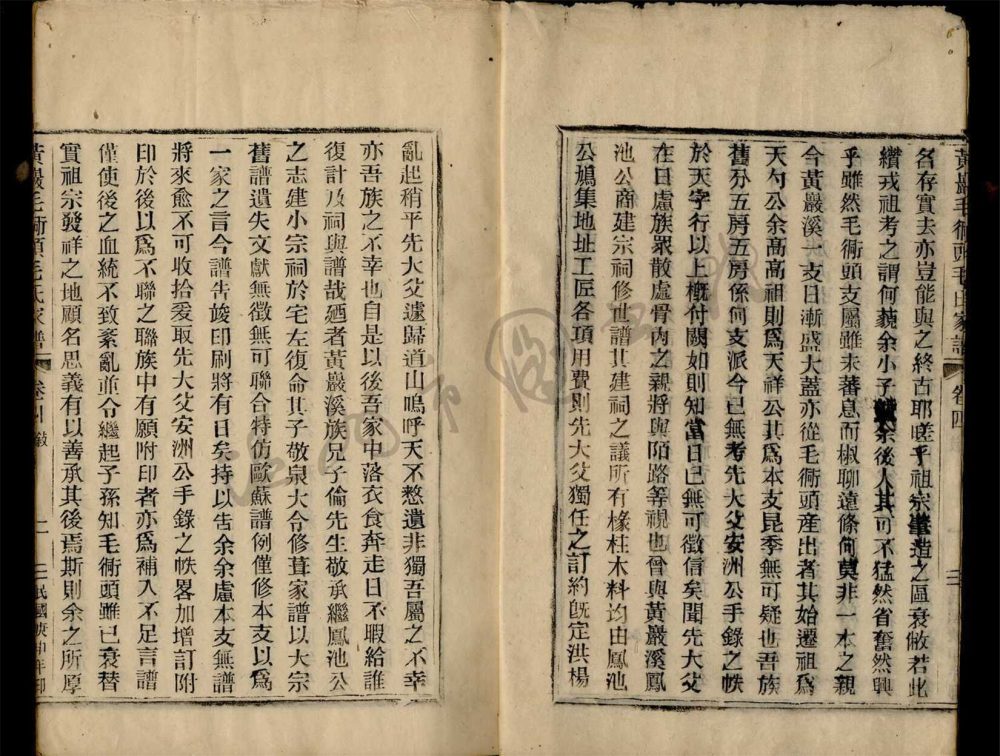 黃巖毛衕頭毛氏家譜 卷四
名存實去亦豈能與之終古耶嗟乎祖宗肇造之區衰敝若此
纘戎祖考之謂何藐余小子余後人其可不猛然省奮然興
乎雖然毛衕頭支屬雖未蕃息而椒聊遠條何莫非一本之親
今黃巖溪一支日漸盛大蓋亦從毛衕頭産出者其始遷祖爲
天勺公余高高祖則爲天祥公其爲本支昆季無可疑也吾族
舊分五房五房係何支派今已無考先大父安洲公手錄之帙
於天字行以上槪付闕如則知當日已無可徵信矣聞先大父
在日慮族眾散處骨肉之親將與陌路等視也曾與黃巖溪鳳
池公商建宗祠修世譜其建祠之議所有椽柱木料均由鳳池
公鳩集地址工匠各項用費則先大父獨任之訂約旣定洪楊
亂起稍平先大父遽歸道山嗚呼天不憗遺非獨吾屬之不幸
亦吾族之不幸也自是以後吾家中落衣食奔走日不暇給誰
復計及祠與譜哉廼者黃巖溪族兄子倫先生敬承繼鳳池公
之志建小宗祠於宅左復命其子敬泉大令修葺家譜以大宗
舊譜遺失文獻無徵無可聯合特仿歐蘇譜例僅修本支以爲
一家之言今譜吿竣印刷將有日矣持以吿余余慮本支無譜
將來愈不可收拾爰取先大父安洲公手錄之帙畧加增訂附
印於後以爲不聯之聯族中有願附印者亦爲補入不足言譜
僅使後之血統不致紊亂並令繼起子孫知毛衕頭雖已衰替
實祖宗發祥之地顧名思義有以善承其後焉斯則余之所厚
黃巖毛衕頭毛氏家譜 卷四 二 民國庚申年印